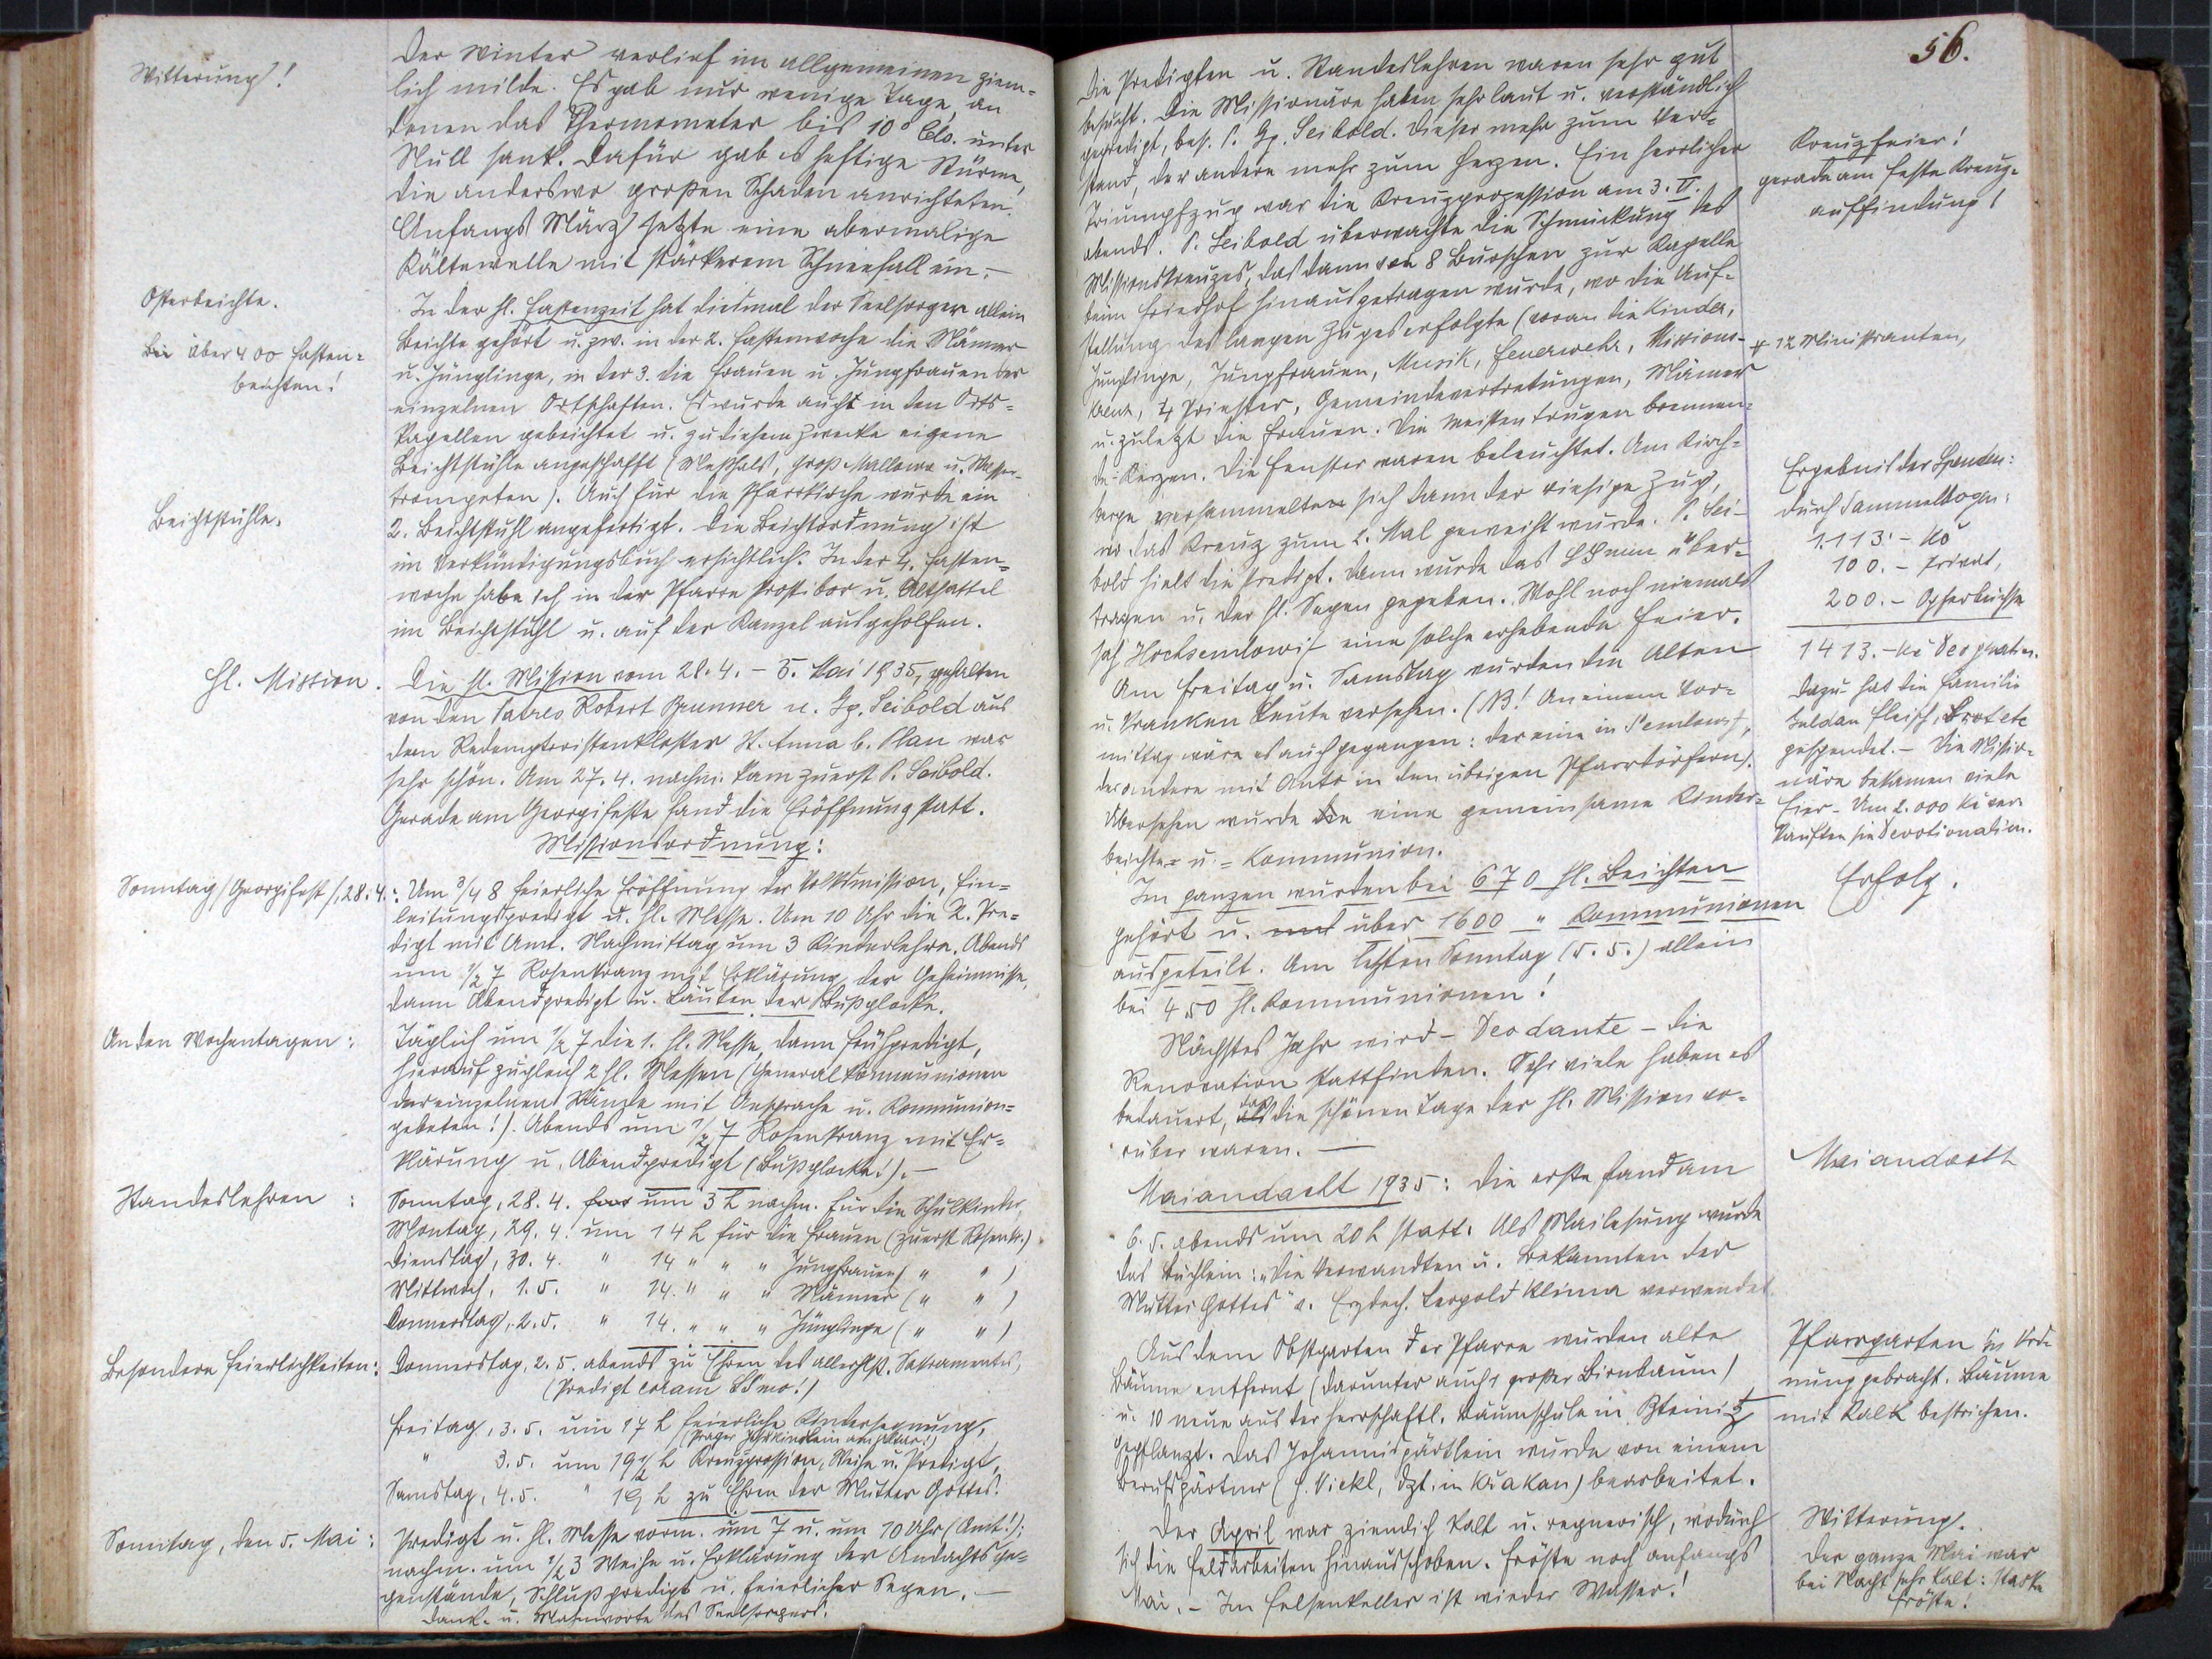 Witterung!
Der Winter verlief im allgemeinen ziem=
lich milde. Es gab nur wenige Tage, an
denen das Thermometer bis 10° Cels. unter
Null sank. Dafür gab es heftige Stürme,
die anderswo großen Schaden anrichteten.
Anfangs März setzte eine abermalige
Kältewelle mit stärkerem Schneefall ein. –
Osterbeichte.
Bei über 400 Fasten=
beichten!
In der hl. Fastenzeit hat diesmal der Seelsorger allein
Beichte gehört u. zw. in der 2. Fastenwoche die Männer
u. Jünglinge, in der 3. die Frauen u. Jungfrauen der
einzelnen Ortschaften. Es wurde auch in den Orts=
kapellen gebeichtet u. zu diesem Zwecke eigene
Beichtstühle angeschafft (Meßhals, Groß-Mallowa u. Wasser-
trompeten). Auch für die Pfarrkirche wurde ein
Beichtstühle.
2. Beichtstuhl angefertigt. Die Beichtordnung ist
im Verkündigungsbuch ersichtlich. In der 4. Fasten=
woche habe ich in der Pfarre Prostibor u. Altsattel
im Beichtstuhl u. auf der Kanzel ausgeholfen.
Hl. Mission.
Die hl. Mission vom 28.4. – 5. Mai 1935, gehalten
von den Patres Robert Brunner u. Gg. Seibold aus
dem Redemptoristenkloster St. Anna b. Plan war
sehr schön. Am 27.4. nachm. kam zuerst P. Seibold.
Gerade am Georgifeste fand die Eröffnung statt.
Missionsordnung:
Sonntag (Georgifest), 28.4.:
Um 3/4 8 feierliche Eröffnung der Volksmission, Ein=
leitungspredigt u. hl. Messe. Um 10 Uhr die 2. Pre=
digt mit Amt. Nachmittag um 3 Kinderlehre. Abends
um 1/2 7 Rosenkranz mit Erklärung der Geheimnisse,
dann Abendpredigt u. Läuten der Bußglocke.
An den Wochentagen:
Täglich um 1/2 7 die 1. hl. Messe, dann Frühpredigt,
hierauf zugleich 2 hl. Messen (Generalkommunionen
der einzelnen Stände mit Ansprache u. Kommunion=
gebeten!). Abends um 1/2 7 Rosenkranz mit Er=
klärung u. Abendpredigt (Bußglocke!). –
Standeslehren:
Sonntag, 28.4. um 3 h nachm. für die Schulkinder,
Montag, 29.4. um 14 h für die Frauen (zuerst Rosenkr.)
Dienstag, 30.4. " 14 " " " Jungfrauen ( " " )
Mittwoch, 1.5. " 14 " " " Männer ( " " )
Donnerstag, 2.5. " 14. " " " Jünglinge ( " " )
Besondere Feierlichkeiten:
Donnerstag, 2.5. abends zu Ehren des allerhlst. Sakramentes,
(Predigt coram SSmo!)
Freitag, 3.5. um 17 h feierliche Kindersegnung,
(Prager Jesukindlein am Altar!)
" 3.5. um 19 1/2 h Kreuzprozession, Weihe u. Predigt,
Samstag, 4.5. " 19 h zu Ehren der Mutter Gottes.
Sonntag, den 5. Mai:
Predigt u. hl. Messe vorm. um 7 u. um 10 Uhr (Amt!);
nachm. um 1/2 3 Weihe u. Erklärung der Andachtsge=
genstände, Schlußpredigt u. feierlicher Segen. –
Dank- u. Mahnworte des Seelsorgers!
56.
Die Predigten u. Standeslehren waren sehr gut
besucht. Die Missionäre haben sehr laut u. verständlich
gepredigt, bes. P. Gg. Seibold. Dieser mehr zum Ver=
stand, der andere mehr zum Herzen. Ein herrlicher
Triumpfzug war die Kreuzprozession am 3. V.
abends. P. Seibold überwachte die Schmückung des
Missionskreuzes, das dann von 8 Burschen zur Kapelle
beim Friedhof hinausgetragen wurde, wo die Auf=
stellung des langen Zuges erfolgte (voran die Kinder,
Jünglinge, Jungfrauen, Musik, Feuerwehr, Missions-
kreuz, 4 Priester, Gemeindevertretungen, Männer
u. zuletzt die Frauen. Die meisten trugen brennen=
de Kerzen. Die Fenster waren beleuchtet. Am Kirch=
berge versammelte sich dann der riesige Zug,
wo das Kreuz zum 2. Mal geweiht wurde. P. Sei-
bold hielt die Predigt. Dann wurde das SSmum über=
tragen u. der hl. Segen gegeben. Wohl noch niemals
sah Hochsemlowitz eine solche erhebende Feier.
Am Freitag u. Samstag wurden die Alten
u. kranken Leute versehen. (NB! An einem Vor=
mittag wäre es auch gegangen: der eine in Semlowitz,
der andere mit Auto in den übrigen Pfarrdörfern).
Übersehen wurde eine gemeinsame Kinder=
beichte= u. = Kommunion.
Im ganzen wurden bei 670 hl. Beichten
gehört u. über 1600 " Kommunionen
ausgeteilt. Am letzten Sonntag (5.5.) allein
bei 450 hl. Kommunionen!
Nächstes Jahr wird – Deo dante – die
Renovation stattfinden. Sehr viele haben es
bedauert, daß die schönen Tage der hl. Mission vo=
rüber waren. –
Maiandacht 1935: Die erste fand am
6.5. abends um 20 h statt. Als Mailesung wurde
das Büchlein: "Die Verwandten u. Bekannten der
Mutter Gottes" v. Erzdech. Leopold Klima verwendet.
Aus dem Obstgarten der Pfarre wurden alte
Bäume entfernt (darunter auch 1 großer Birnbaum)
u. 10 neue aus der herrschaftl. Baumschule in Steinitz
gepflanzt. Das Johannisgärtlein wurde von einem
Berufsgärtner (H. Vickl, dzt. in Krakau) bearbeitet.
Der April war ziemlich kalt u. regnerisch, wodurch
sich die Feldarbeiten hinausschoben. Fröste noch anfangs
Mai. – Im Felsenkeller ist wieder Wasser!
Kreuzfeier!
gerade am Feste Kreuz=
auffindung!
+ 12 Ministranten,
Ergebnis der Spenden:
durch Sammelbogen:
1.113.– Kč
100.– privat,
200.– Opferbüchse
1413.– Kč Deo gratias.
Dazu hat die Familie
Fleisch, Brot etc
gespendet. – Die Missio=
näre bekamen viele
Eier – Um 2.000 Kč ver=
kauften sie Devotionalien.
Erfolg.
Maiandacht
Pfarrgarten in Ord=
nung gebracht. Bäume
mit Kalk bestrichen.
Witterung.
Der ganze Mai war
bei Nacht sehr kalt: starke
Fröste!